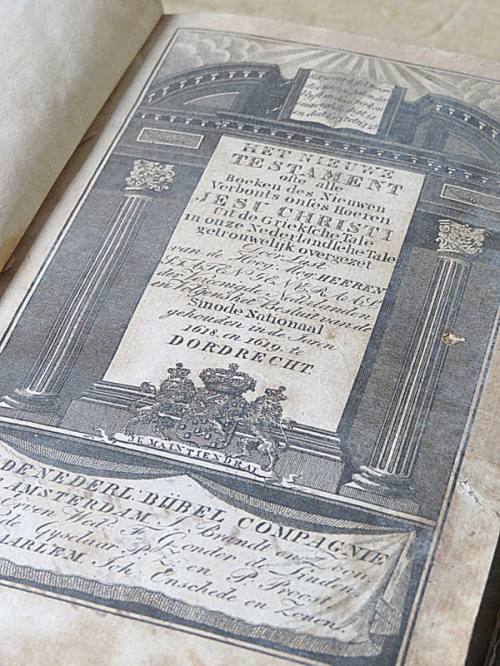 HET NIEUWE
TESTAMENT
ofte alle
Boeken des Nieuwen
Verbonts onses Heeren
JESU CHRISTI
Uit de Grieksche Tale
in onze Nederlandsche Tale
getrouwelijk overgezet
Door Last
van de Hoog-Mog: HEEREN
STATEN GENERAAL
der Vereenigde Nederlanden
en volgens het Besluit van de
Sinode Nationaal
gehouden in de Jaren
1618 en 1619 te
DORDRECHT
JE MAINTIENDRAI
DE NEDERL: BIJBEL COMPAGNIE
AMSTERDAM J. Brandt en Zoon
Erven Wed. F. Gonder de Linden
P. Proost
HAARLEM Joh. Enschedé en Zonen